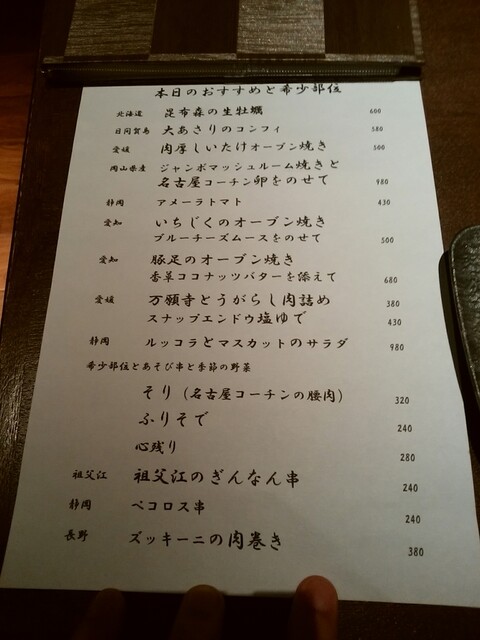 本日のおすすめと希少部位
北海道 昆布森の生牡蠣 600
日間賀島 大あさりのコンフィ 580
愛媛 肉厚しいたけオーブン焼き 500
岡山県産 ジャンボマッシュルーム焼きと
名古屋コーチン卵をのせて 980
静岡 アメーラトマト 430
愛知 いちじくのオーブン焼き
ブルーチーズムースをのせて 500
愛知 豚足のオーブン焼き
香草ココナッツバターを添えて 680
愛媛 万願寺とうがらし肉詰め 380
スナップエンドウ塩ゆで 430
静岡 ルッコラとマスカットのサラダ 980
希少部位とあそび串と季節の野菜
そり(名古屋コーチンの腰肉) 320
ふりそで 240
心残り 280
祖父江 祖父江のぎんなん串 240
静岡 ペコロス串 240
長野 ズッキーニの肉巻き 380